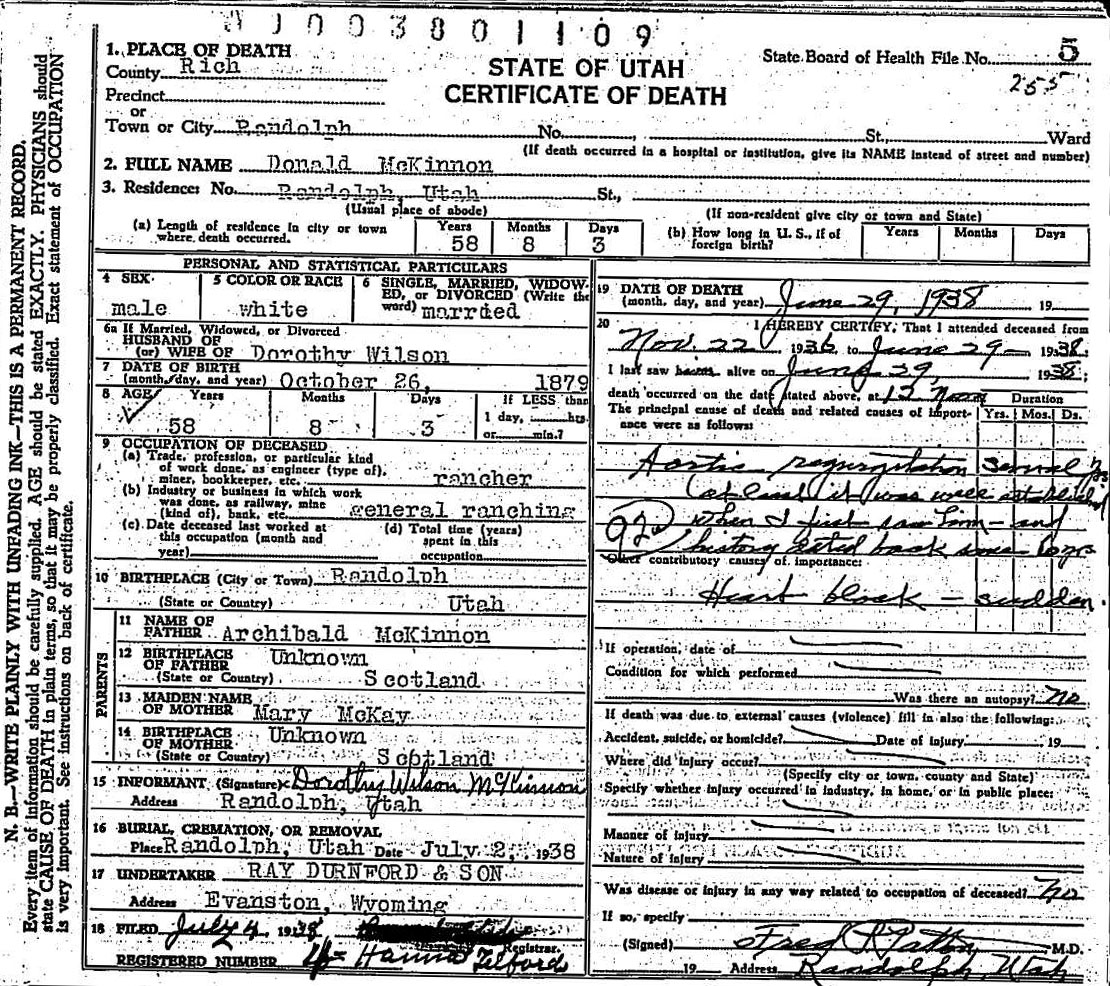 003801109
1. PLACE OF DEATH
County Rich
Precinct
or
Town or City Randolph No. St., Ward
STATE OF UTAH
CERTIFICATE OF DEATH
State Board of Health File No. 5
255
(If death occurred in a hospital or institution, give its NAME instead of street and number)
2. FULL NAME Donald McKinnon
3. Residence: No. Randolph, Utah St.,
(Usual place of abode)
(If non-resident give city or town and State)
(a) Length of residence in city or town where death occurred.
Years Months Days
58 8 3
(b) How long in U. S., if of foreign birth?
Years Months Days
PERSONAL AND STATISTICAL PARTICULARS
4 SEX
male
5 COLOR OR RACE
white
6 SINGLE, MARRIED, WIDOW-
ED, or DIVORCED (Write the
word) married
6a If Married, Widowed, or Divorced
HUSBAND OF
(or) WIFE OF Dorothy Wilson
7 DATE OF BIRTH
(month, day, and year) October 26, 1879
8 AGE Years Months Days If LESS than
1 day, hrs.
58 8 3 or min.?
9 OCCUPATION OF DECEASED
(a) Trade, profession, or particular kind
of work done, as engineer (type of),
miner, bookkeeper, etc. rancher
(b) Industry or business in which work
was done, as railway, mine
(kind of), bank, etc. general ranching
(c) Date deceased last worked at
this occupation (month and
year)
(d) Total time (years)
spent in this
occupation
10 BIRTHPLACE (City or Town) Randolph
(State or Country) Utah
PARENTS
11 NAME OF
FATHER Archibald McKinnon
12 BIRTHPLACE Unknown
OF FATHER
(State or Country) Scotland
13 MAIDEN NAME
OF MOTHER Mary McKay
14 BIRTHPLACE Unknown
OF MOTHER
(State or Country) Scotland
15 INFORMANT (Signature) Dorothy Wilson McKinnon
Address Randolph, Utah
16 BURIAL, CREMATION, OR REMOVAL
Place Randolph, Utah Date July 2, 1938
17 UNDERTAKER RAY DURNFORD & SON
Address Evanston, Wyoming
18 FILED July 4, 1938
Registrar.
REGISTERED NUMBER 4 Hanna Telford
19 DATE OF DEATH
(month, day, and year) June 29, 1938 19
20 I HEREBY CERTIFY, That I attended deceased from
Nov. 22 1936 to June 29 1938;
I last saw alive on June 29, 1938;
death occurred on the date stated above, at 12 Noon
Duration
The principal cause of death and related causes of import-
ance were as follows:
Yrs. Mos. Ds.
Aortic regurgitation several yrs
(at least it was well established
92 when I first saw him - and
history dated back some yrs
Other contributory causes of importance:
Heart block - sudden.
If operation, date of
Condition for which performed
Was there an autopsy? No
If death was due to external causes (violence) fill in also the following:
Accident, suicide, or homicide? Date of injury 19
Where did injury occur?
(Specify city or town, county and State)
Specify whether injury occurred in industry, in home, or in public place:
Manner of injury
Nature of injury
Was disease or injury in any way related to occupation of deceased? No
If so, specify
(Signed) Fred M.D.
19 Address Randolph, Utah
N. B.—WRITE PLAINLY WITH UNFADING INK—THIS IS A PERMANENT RECORD.
Every item of information should be carefully supplied. AGE should be stated EXACTLY. PHYSICIANS should
state CAUSE OF DEATH in plain terms, so that it may be properly classified. Exact statement of OCCUPATION
is very important. See instructions on back of certificate.